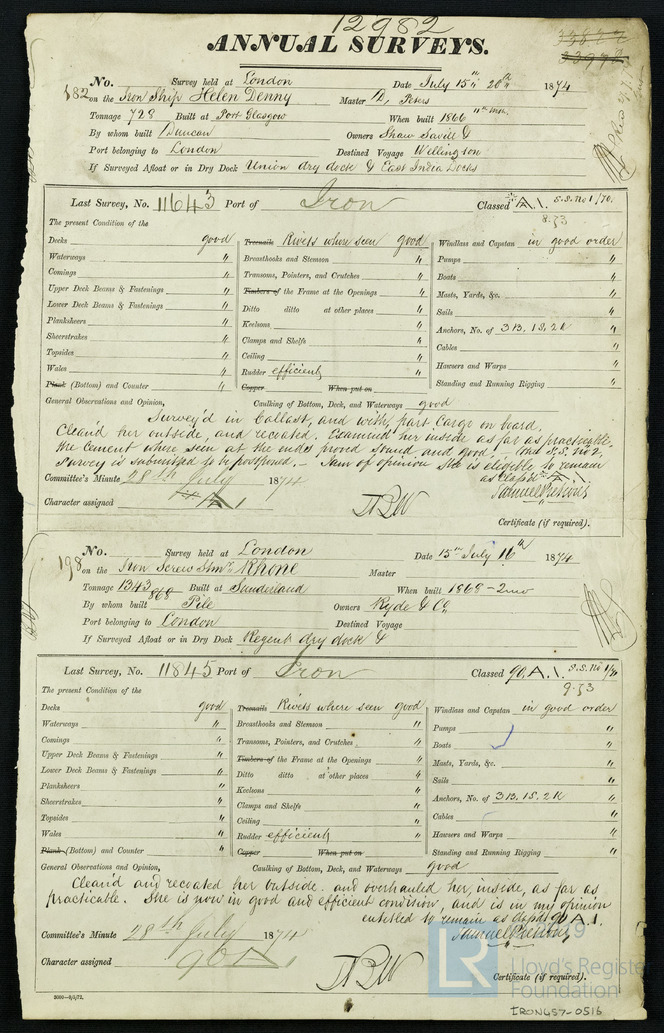 12982
ANNUAL SURVEYS.
No. 182 Survey held at London Date July 15th 20th 1874
on the Iron Ship Helen Denny Master D. Peters
Tonnage 728 Built at Port Glasgow When built 1866 11th mo
By whom built Duncan Owners Shaw Savill &
Port belonging to London Destined Voyage Wellington
If Surveyed Afloat or in Dry Dock Union dry dock & East India Docks
Last Survey, No. 11643 Port of Iron Classed A.1. S.S. No 1/70.
8.53
The present Condition of the
Decks good Treenails Rivets where seen good Windlass and Capstan in good order
Waterways " Breasthooks and Stemson " Pumps "
Comings " Transoms, Pointers, and Crutches " Boats "
Upper Deck Beams & Fastenings " Timbers of the Frame at the Openings " Masts, Yards, &c. "
Lower Deck Beams & Fastenings " Ditto ditto at other places " Sails "
Planksheers " Keelsons " Anchors, No. of 3B, 1S, 2K "
Sheerstrakes " Clamps and Shelfs " Cables "
Topsides " Ceiling " Hawsers and Warps "
Wales " Rudder efficient Standing and Running Rigging "
Plank (Bottom) and Counter " Copper When put on
General Observations and Opinion, Caulking of Bottom, Deck, and Waterways good
Survey'd in ballast, and with part cargo on board.
Clean'd her outside, and recoated. Examined her inside as far as practicable,
the cement where seen at the ends proved sound and good. S.S. No 2,
Survey is submitted to be postponed. I am of opinion she is eligible to remain
as class'd A.1.
Committee's Minute 28th July 1874
Character assigned A1
Certificate (if required).
No. 198 Survey held at London Date 15th July 16th 1874
on the Iron Screw Stmr Rhone Master
Tonnage 1343 868 Built at Sunderland When built 1868-2mo
By whom built Pile Owners Ryde & Co
Port belonging to London Destined Voyage
If Surveyed Afloat or in Dry Dock Regent dry dock &
Last Survey, No. 11845 Port of Iron Classed 90,A.1. S.S. No 1/71
9.53
The present Condition of the
Decks good Treenails Rivets where seen good Windlass and Capstan in good order
Waterways " Breasthooks and Stemson " Pumps "
Comings " Transoms, Pointers, and Crutches " Boats "
Upper Deck Beams & Fastenings " Timbers of the Frame at the Openings " Masts, Yards, &c. "
Lower Deck Beams & Fastenings " Ditto ditto at other places " Sails "
Planksheers " Keelsons " Anchors, No. of 3B, 1S, 2K "
Sheerstrakes " Clamps and Shelfs " Cables "
Topsides " Ceiling " Hawsers and Warps "
Wales " Rudder efficient Standing and Running Rigging "
Plank (Bottom) and Counter " Copper When put on
General Observations and Opinion, Caulking of Bottom, Deck, and Waterways good
Clean'd and recoated her outside. and overhauled her, inside, as far as
practicable. She is now in good and efficient condition, and is in my opinion
entitled to remain as class'd 90 A.1.
Committee's Minute 28th July 1874
Character assigned 90A1
Certificate (if required).
LR
Lloyd's Register
Foundation
2000—6/5/72.
IRON457-0516